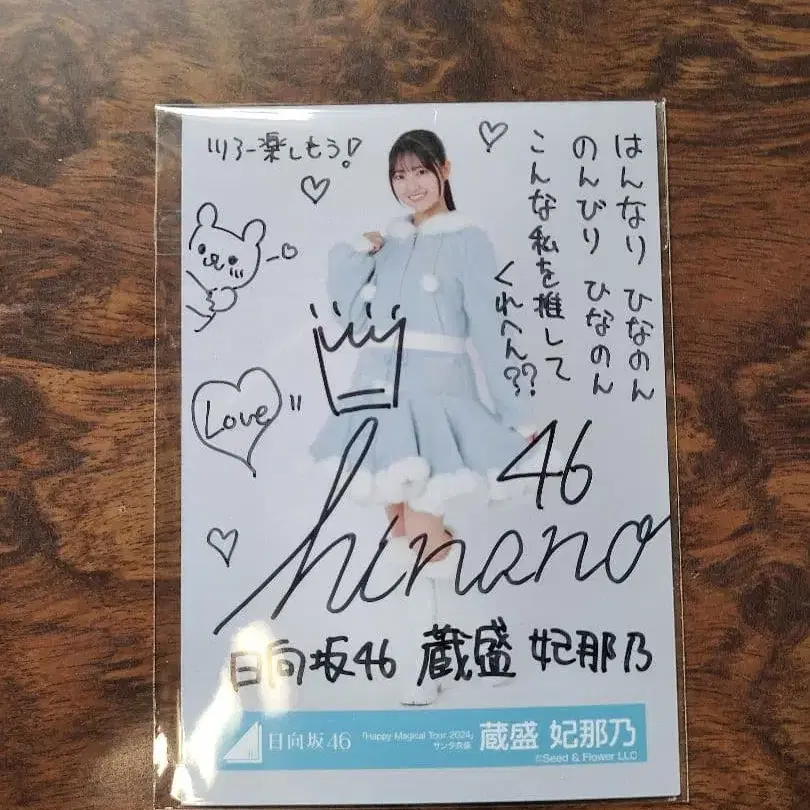 はんなり ひなのん
のんびり ひなのん
こんな私を推して
くれへん??
ツアー楽しもう!
Love
46
hinano
日向坂46 蔵盛 妃那乃
日向坂46
「Happy Magical Tour 2024」
サンタ衣装
蔵盛 妃那乃
©Seed & Flower LLC